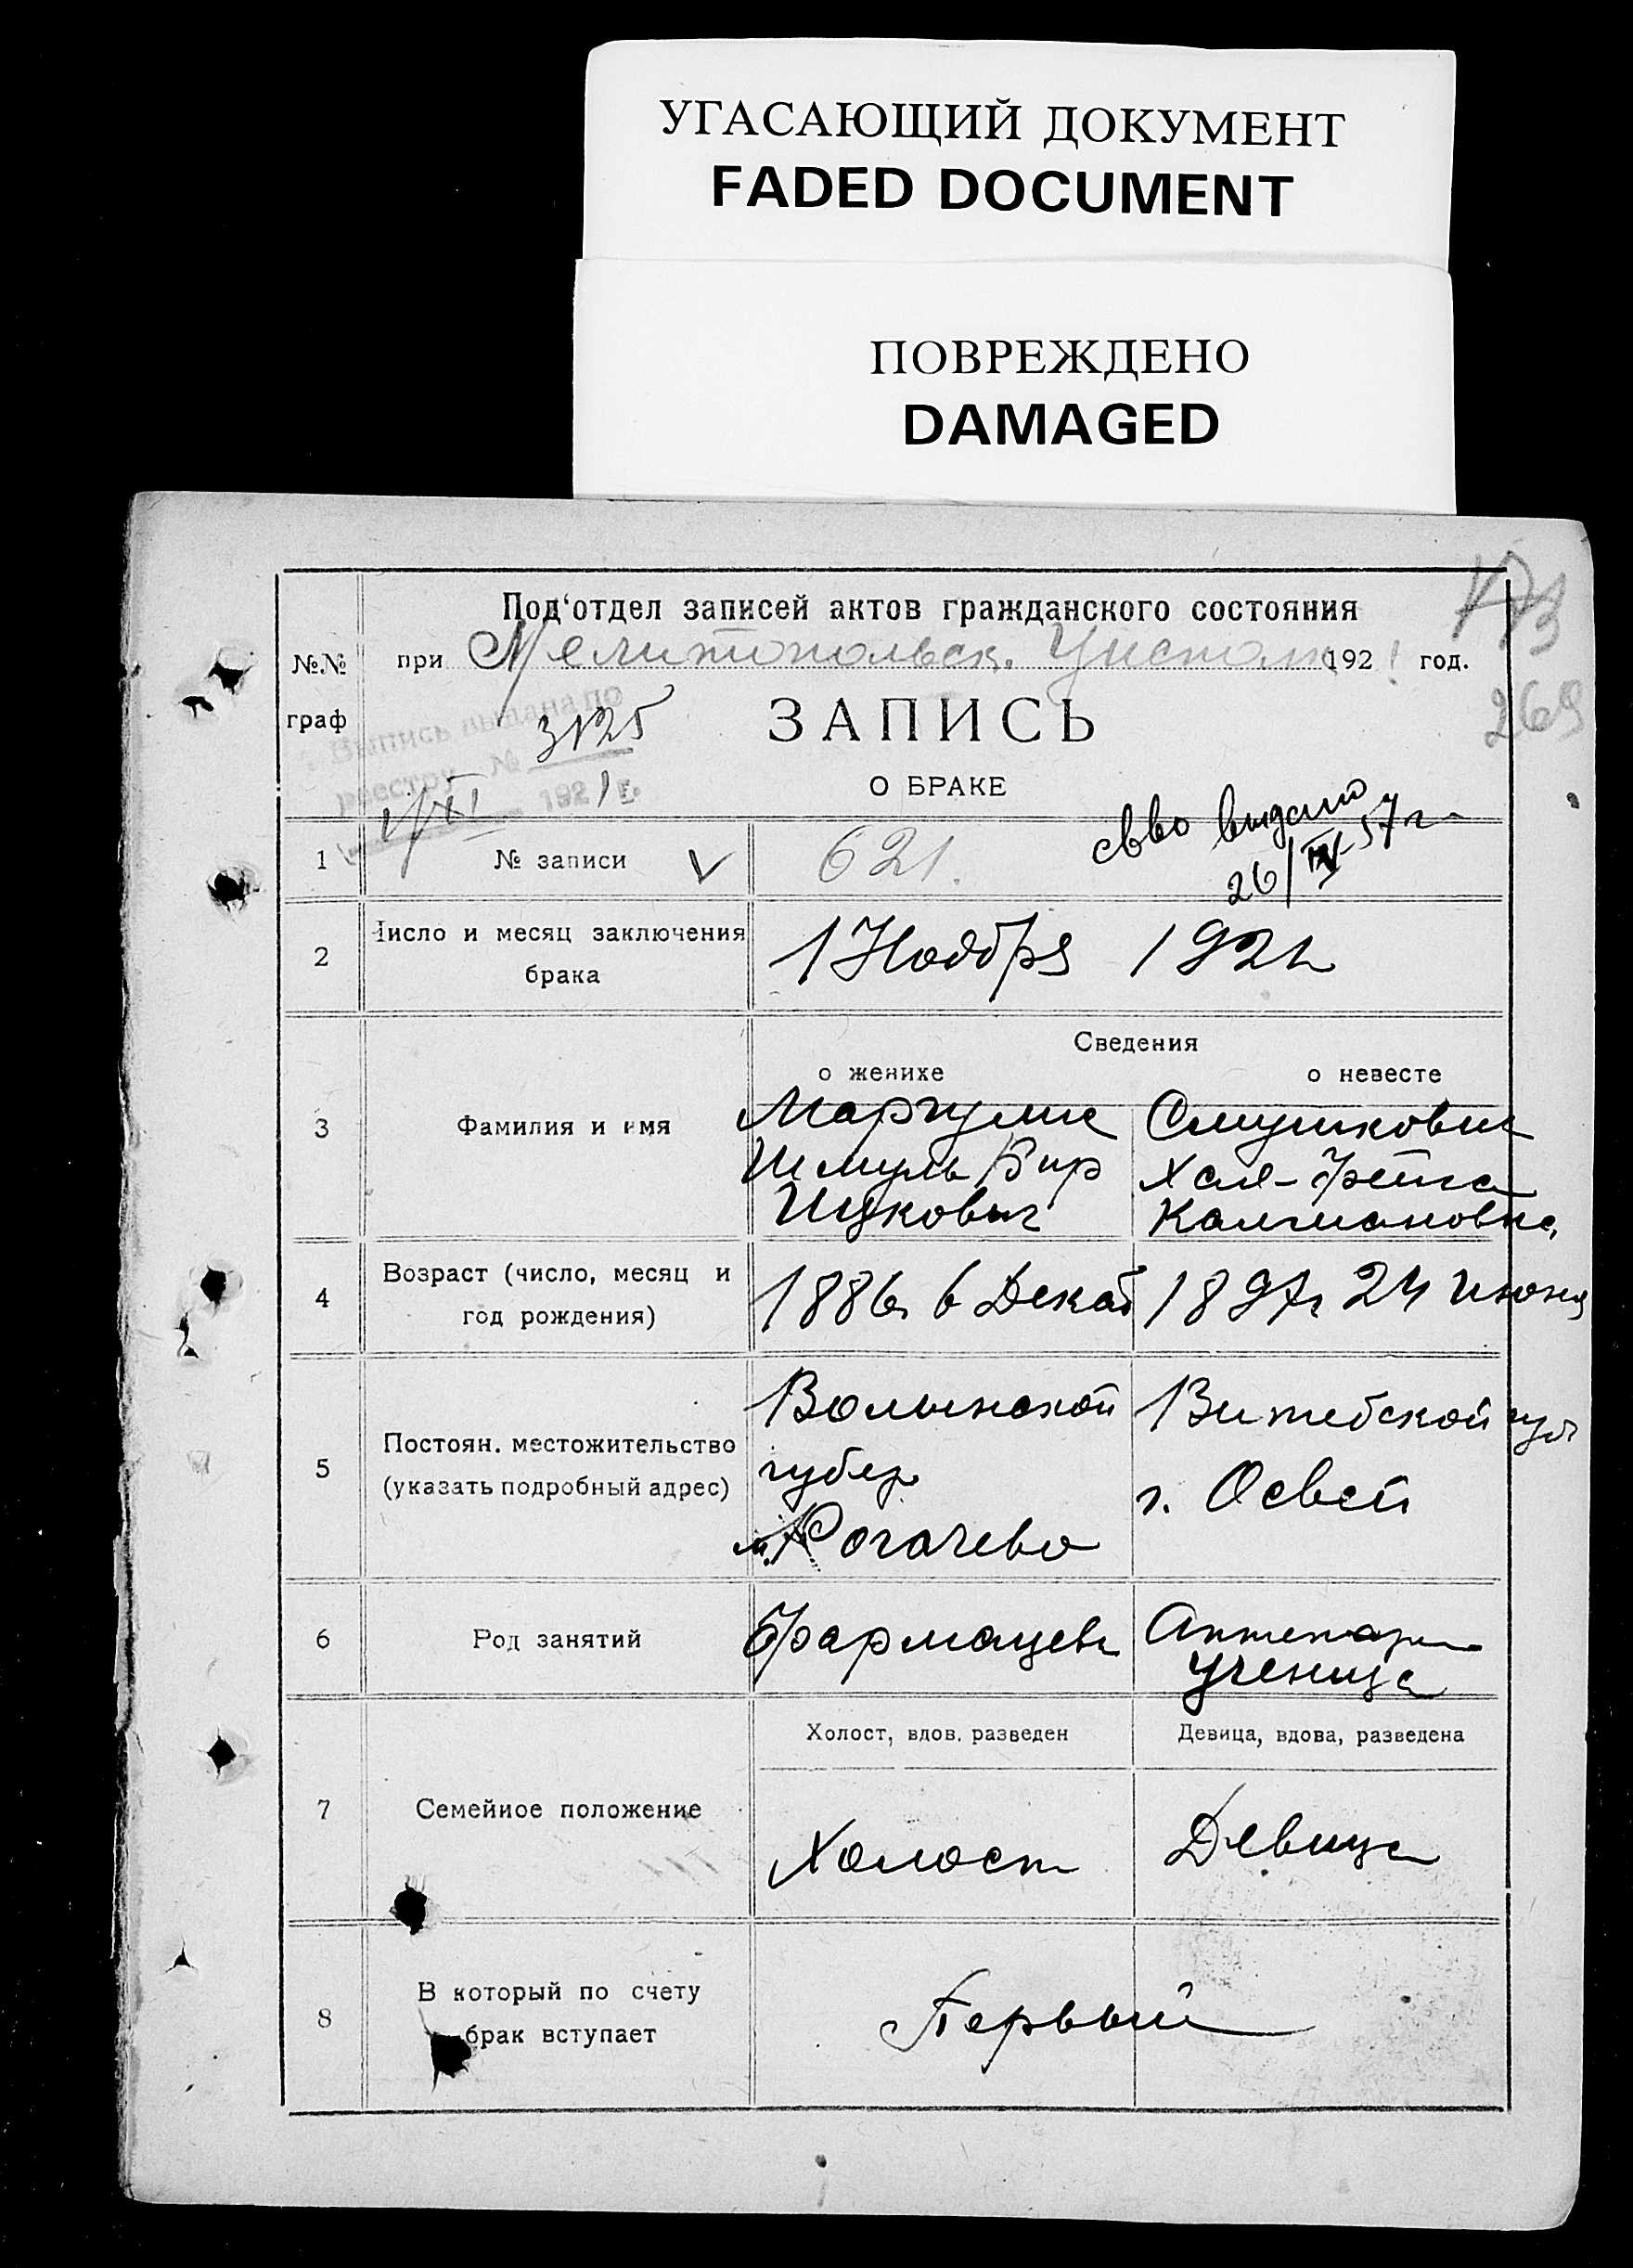 УГАСАЮЩИЙ ДОКУМЕНТ
FADED DOCUMENT
ПОВРЕЖДЕНО
DAMAGED
173
269
№№
граф
Под‘отдел записей актов гражданского состояния
при Мелитопольск. 1921 год.
ЗАПИСЬ
О БРАКЕ
Выпись выдана по
реестру № 3125
1/XI 1921 г.
свво выдано
26/IV-57 г.
1
№ записи
621.
2
Число и месяц заключения
брака
1 Ноября 1921
3
Фамилия и имя
Сведения
о женихе
о невесте
Маргулис
Шмуль Бир
Ицкович
Смушкович
Хая-Фейга
Калмановна
4
Возраст (число, месяц и
год рождения)
1886 6 Декаб
1897 г 24 июня
5
Постоян. местожительство
(указать подробный адрес)
Волынской
губер
м. Рогачево
Витебской губ
г. Освей
6
Род занятий
Фармацевт
Аптекар
ученица
7
Семейное положение
Холост, вдов, разведен
Девица, вдова, разведена
Холост
Девица
8
В который по счету
брак вступает
Первый